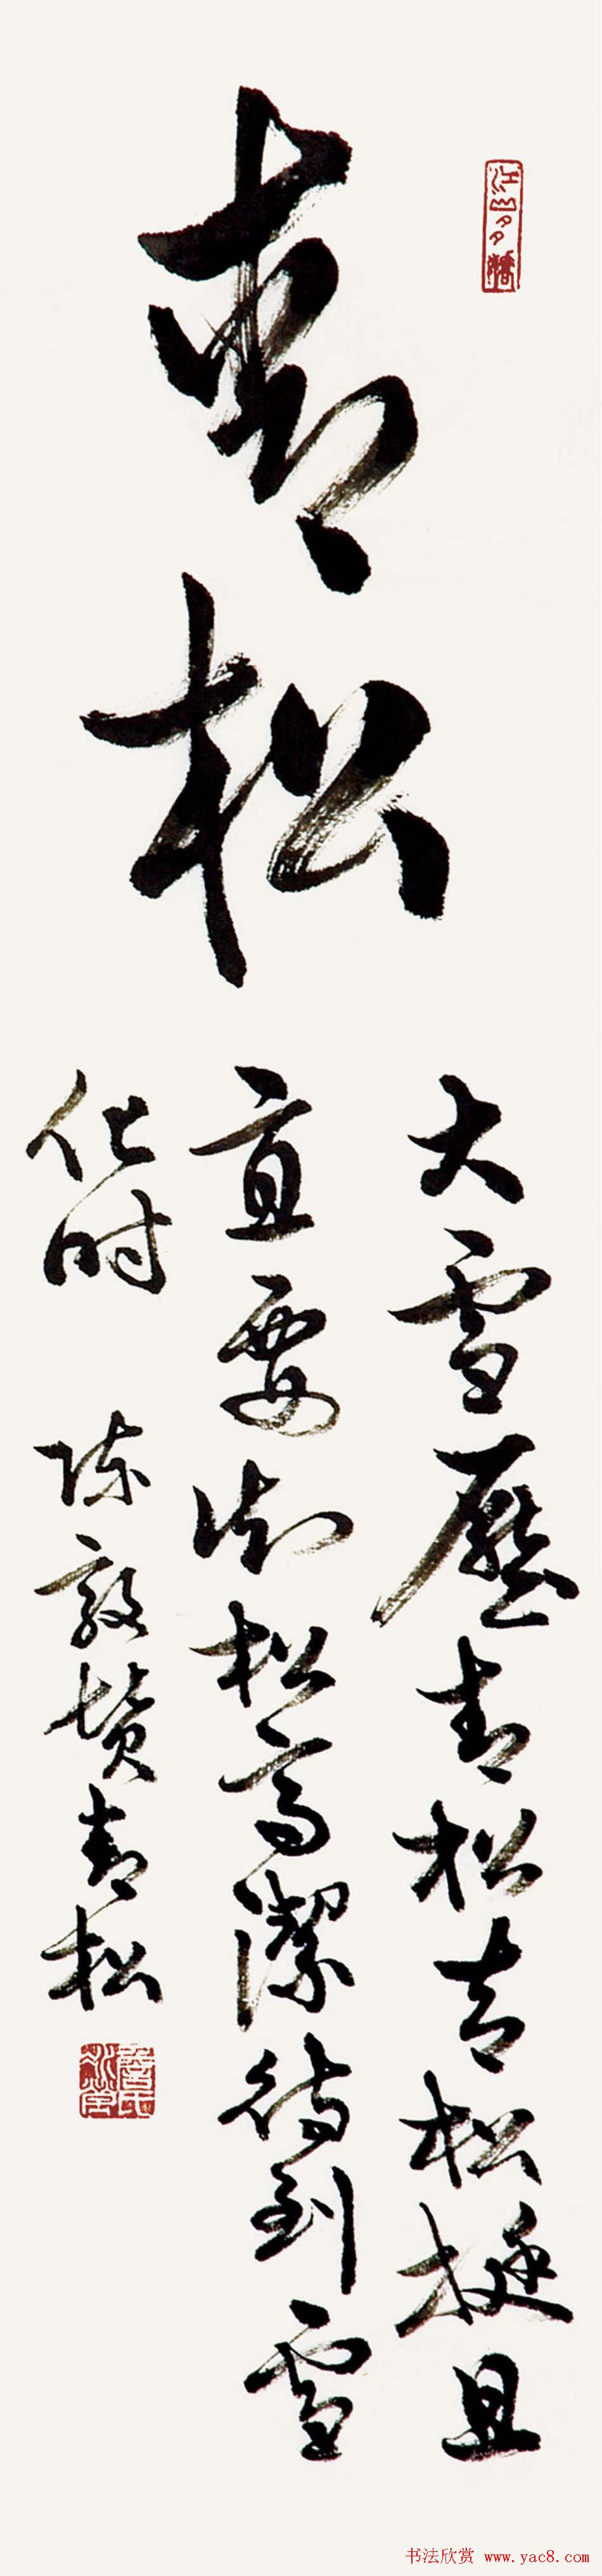 江山多嬌
青松
大雪壓青松青松挺且
直要知松高潔待到雪
化时 陈毅贊青松
书法欣赏 www.yac8.com